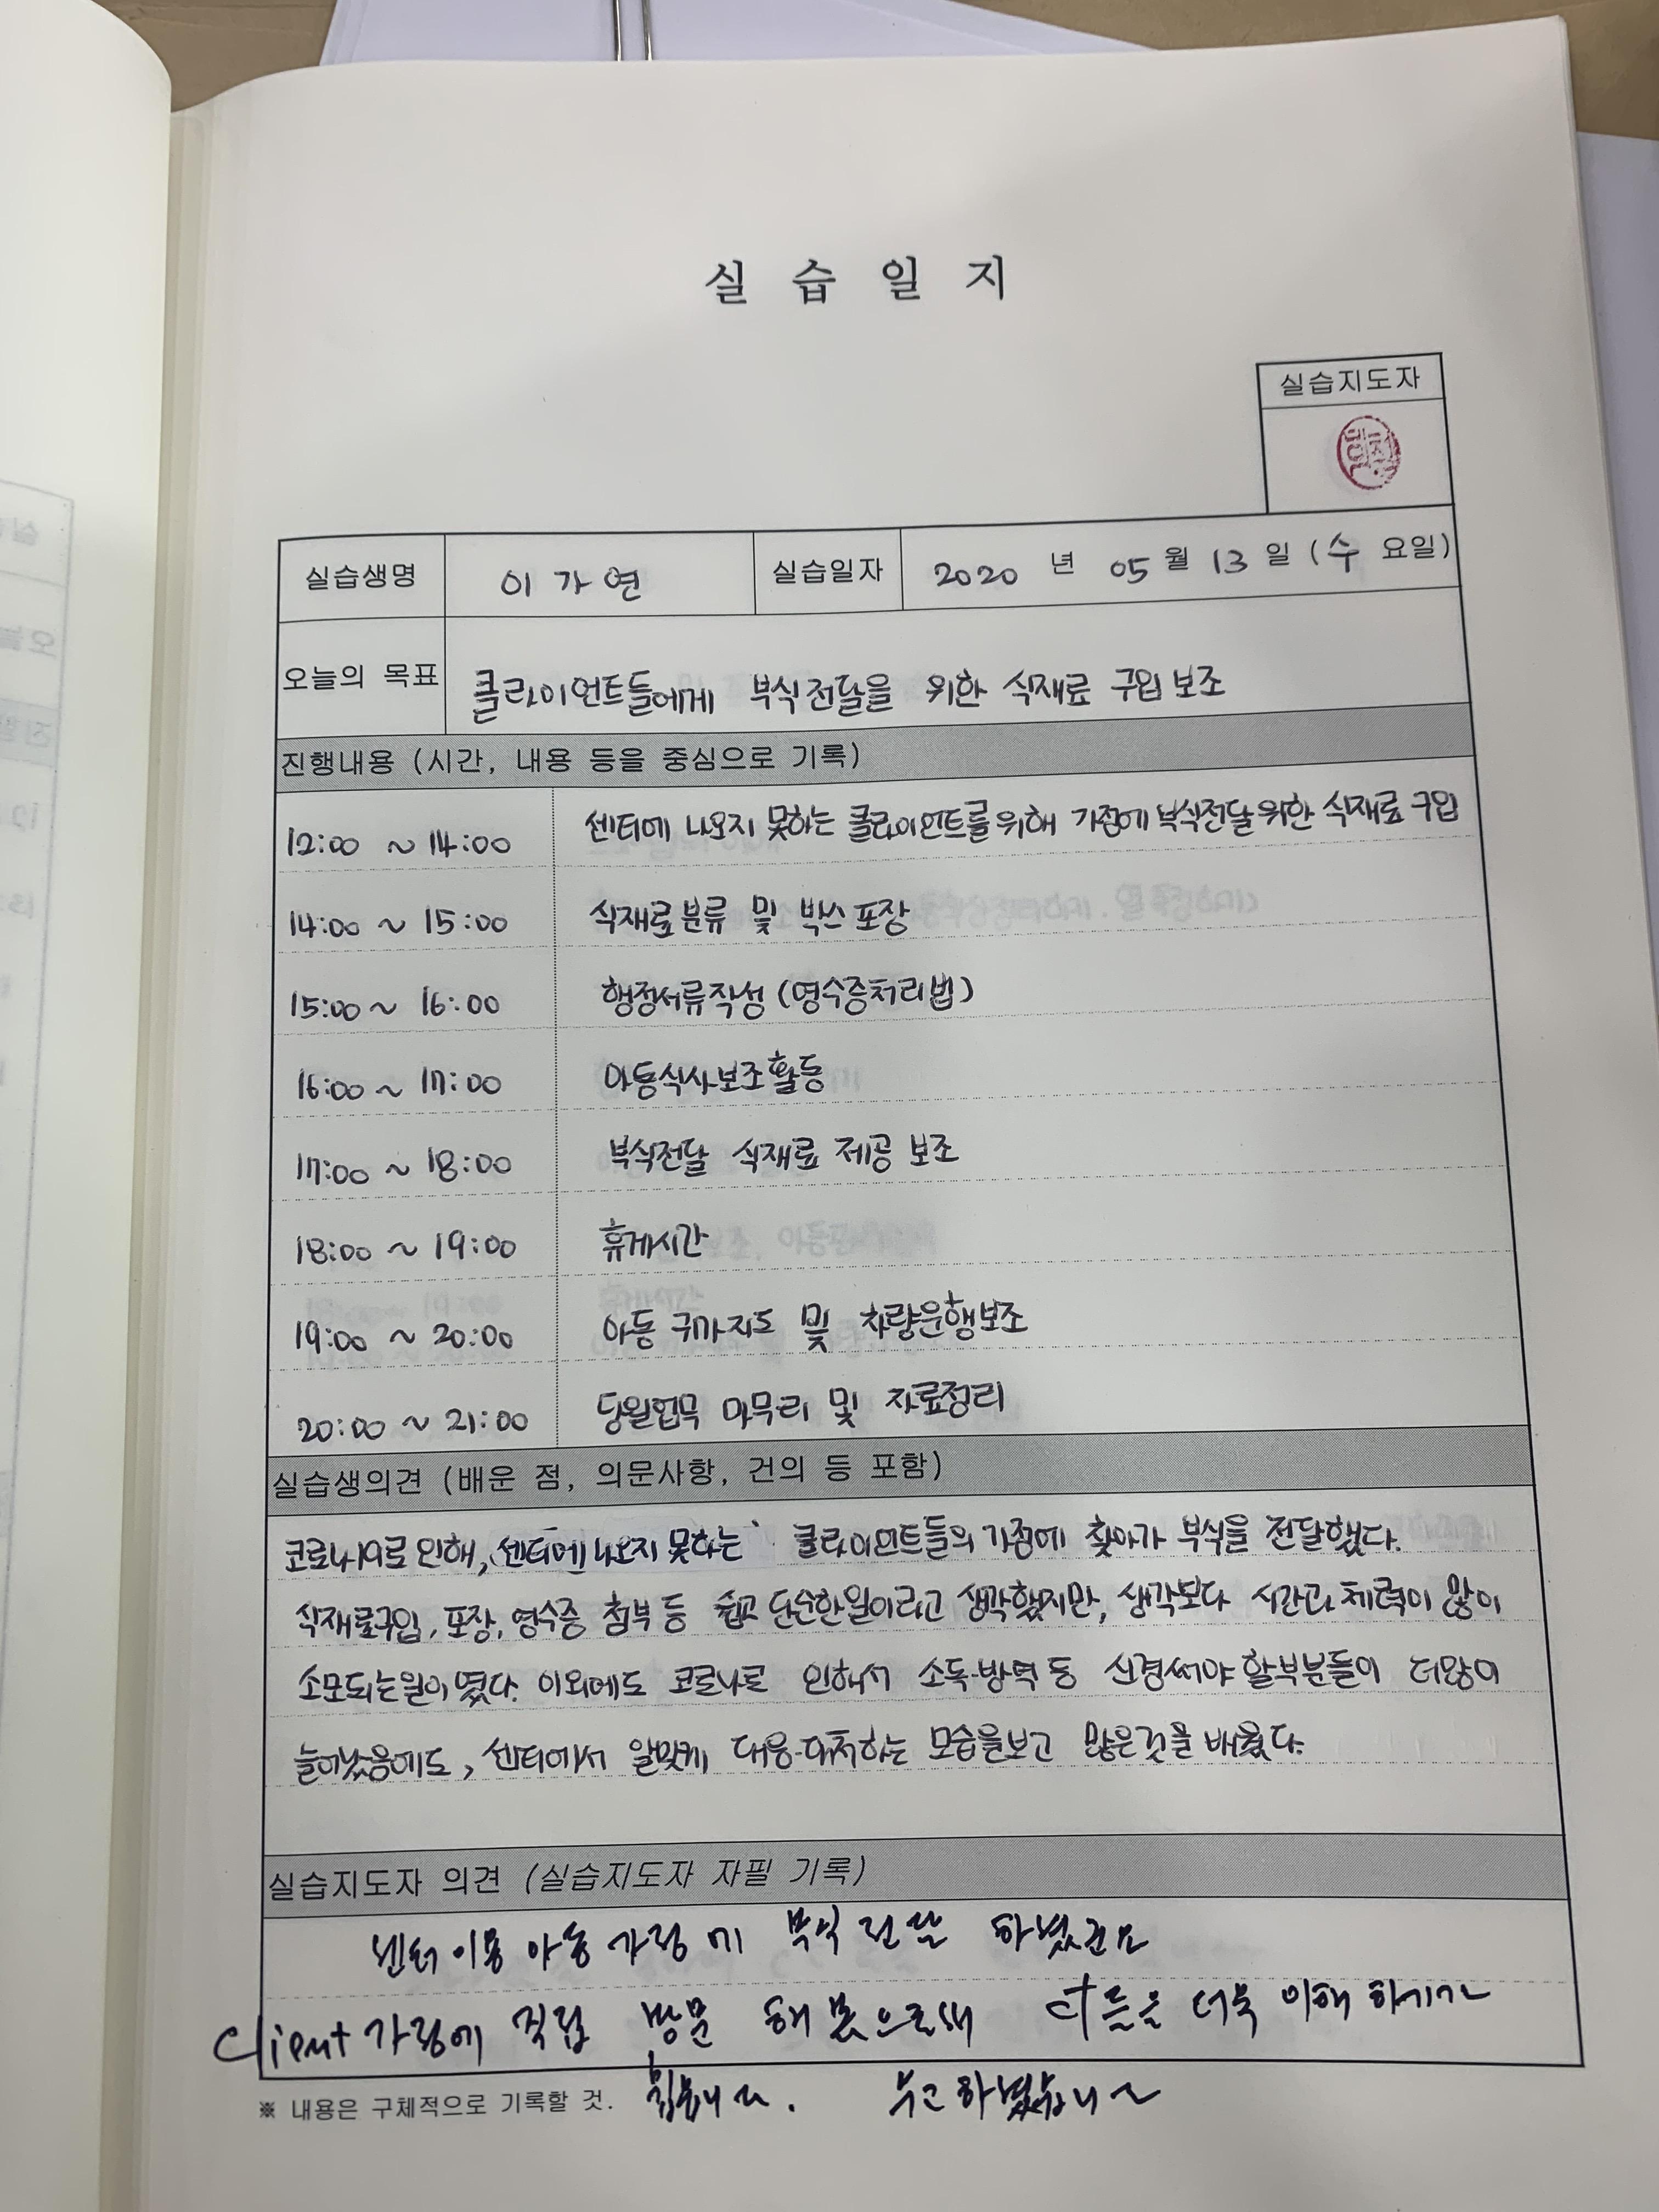 실 습 일 지
실습지도자
실습생명 이가연 실습일자 2020 년 05 월 13 일 (수 요일)
오늘의 목표 클라이언트들에게 부식전달을 위한 식재료 구입 보조
진행내용 (시간, 내용 등을 중심으로 기록)
12:00 ~ 14:00 센터에 나오지 못하는 클라이언트를 위해 가정에 부식전달 위한 식재료 구입
14:00 ~ 15:00 식재료 분류 및 박스 포장
15:00 ~ 16:00 행정서류작성 (영수증처리법)
16:00 ~ 17:00 아동식사보조활동
17:00 ~ 18:00 부식전달 식재료 제공 보조
18:00 ~ 19:00 휴게시간
19:00 ~ 20:00 아동 귀가지도 및 차량운행보조
20:00 ~ 21:00 당일업무 마무리 및 자료정리
실습생의견 (배운 점, 의문사항, 건의 등 포함)
코로나19로 인해, 센터에 나오지 못하는 클라이언트들의 가정에 찾아가 부식을 전달했다.
식재료구입, 포장, 영수증 첨부 등 쉽고 단순한일이라고 생각했지만, 생각보다 시간과 체력이 많이
소모되는일이였다. 이외에도 코로나로 인해서 소독·방역 등 신경써야 할부분들이 더많이
늘어났음에도, 센터에서 알맞게 대응·대처하는 모습을보고 많은것을 배웠다.
실습지도자 의견 (실습지도자 자필 기록)
센터 이용 아동 가정에 부식 전달 하셨군요
Client 가정에 직접 방문 해 봄으로써 더욱 이해 하기가
※ 내용은 구체적으로 기록할 것. 쉽습니다. 수고 하셨습니다